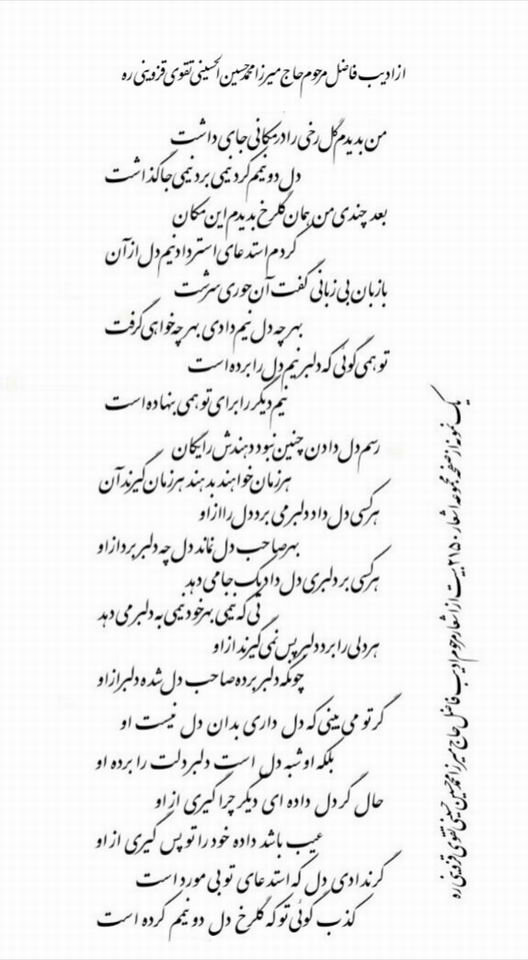 از ادیب فاضل مرحوم حاج میرزا محمد حسین الحسینی تقوی قزوینی ره
من بدیدم گل رخی را در مکانی جای داشت
دل دو نیم کرد نیمی برد نیمی جا گذاشت
بعد چندی من همان گلرخ بدیدم این مکان
کردم استدعای استرداد نیم دل از آن
با زبان بی زبانی گفت آن حوری سرشت
بهر چه دل نیم دادی بهر چه خواهی گرفت
تو همی گوئی که دلبر نیم دل را برده است
نیم دیگر را برای تو همی بنهاده است
رسم دل دادن چنین نبود دهندش رایگان
هر زمان خواهند بدهند هر زمان گیرند آن
هر کسی دل داد دلبر می برد دل را از او
بهر صاحب دل نماند دل چه دلبر برد از او
هر کسی بر دلبری دل داد یک جا می دهد
نی که نیمی بهر خود نیمی به دلبر می دهد
هر دلی را برد دلبر پس نمی گیرند از او
چونکه دلبر برده صاحب دل شده دلبر از او
گر تو می بینی که دل داری بدان دل نیست او
بلکه او شبه دل است دلبر دلت را برده او
حال گر دل داده ای دیگر چرا گیری از او
عیب باشد داده خود را تو پس گیری از او
گر ندادی دل که استدعای تو بی مورد است
کذب گوئی تو که گلرخ دل دو نیم کرده است
یک نمونه از صفحه مجموعه اشعار ۲۱۵۰ بیت از اشعار مرحوم ادیب فاضل حاج میرزا محمد حسین حسینی تقوی قزوینی ره